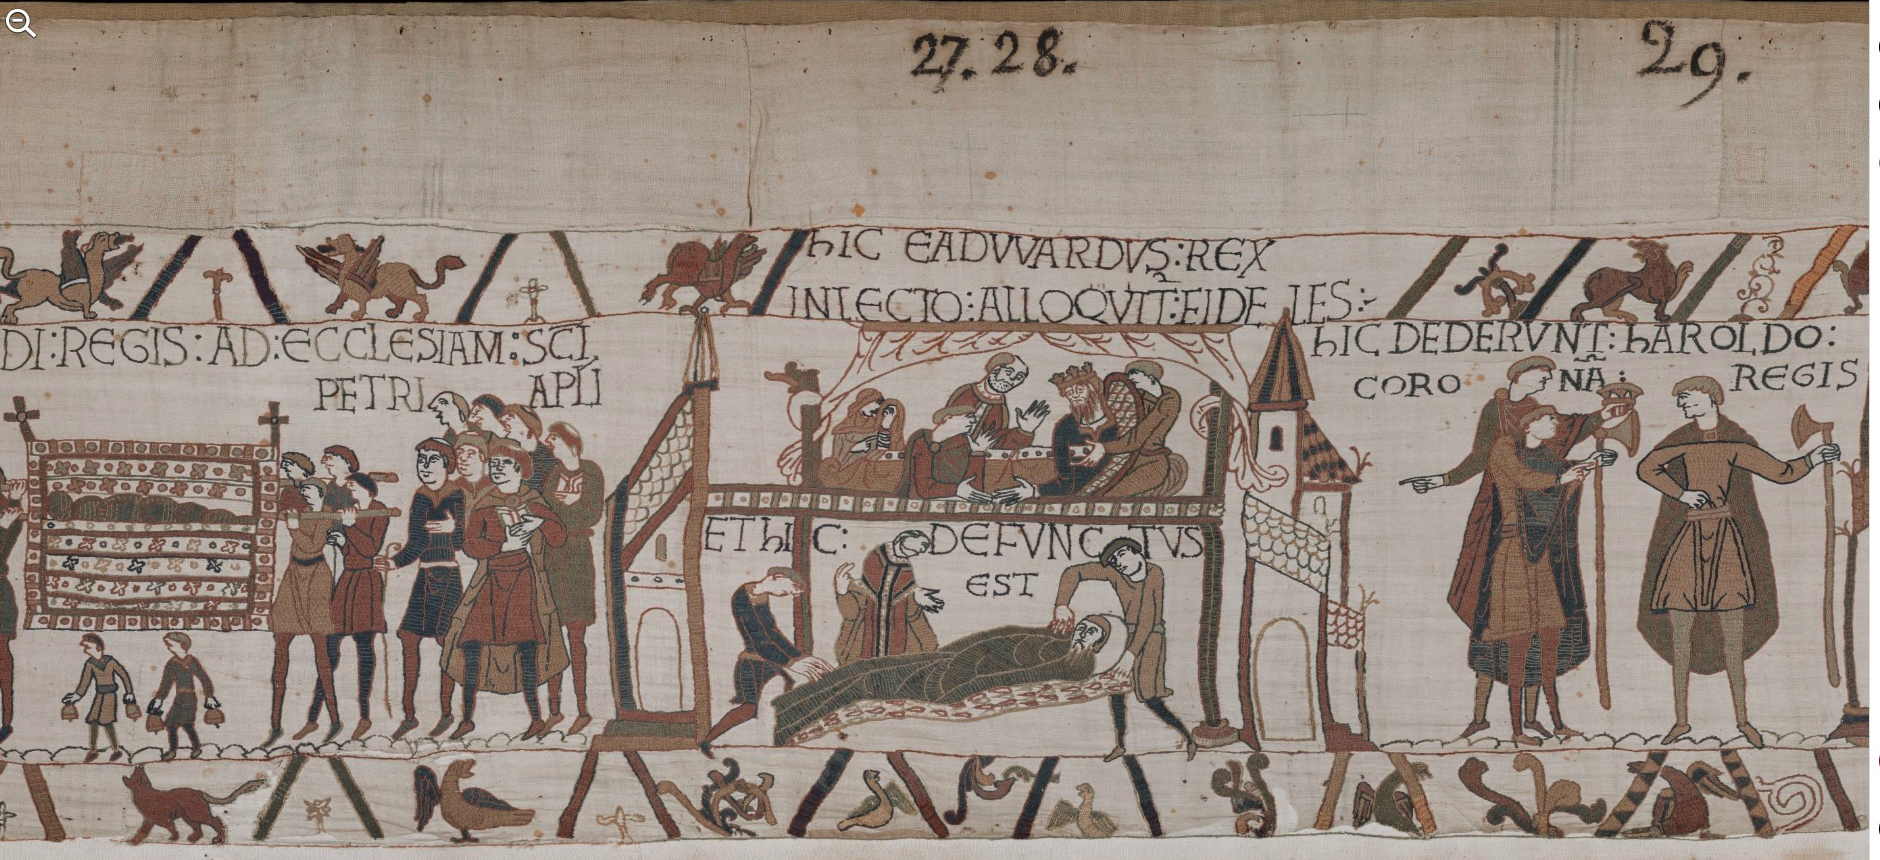 27. 28.
29.
hIC EADVVARDVS: REX
IN LECTO: ALLOQVIT: FIDELES:
DI: REGIS: AD: ECCLESIAM: SCI
PETRI APLI
hIC DEDERVNT: hAROLDO:
CORONA: REGIS
ET hIC: DEFVNCTVS
EST